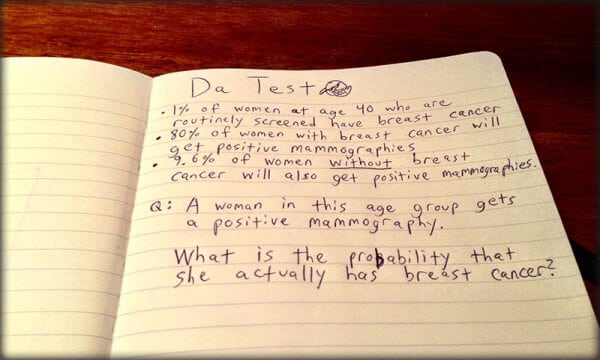 Da Test
• 1% of women at age 40 who are
routinely screened have breast cancer
• 80% of women with breast cancer will
get positive mammographies
• 9.6% of women without breast
cancer will also get positive mammographies.
Q: A woman in this age group gets
a positive mammography.
What is the probability that
she actually has breast cancer?